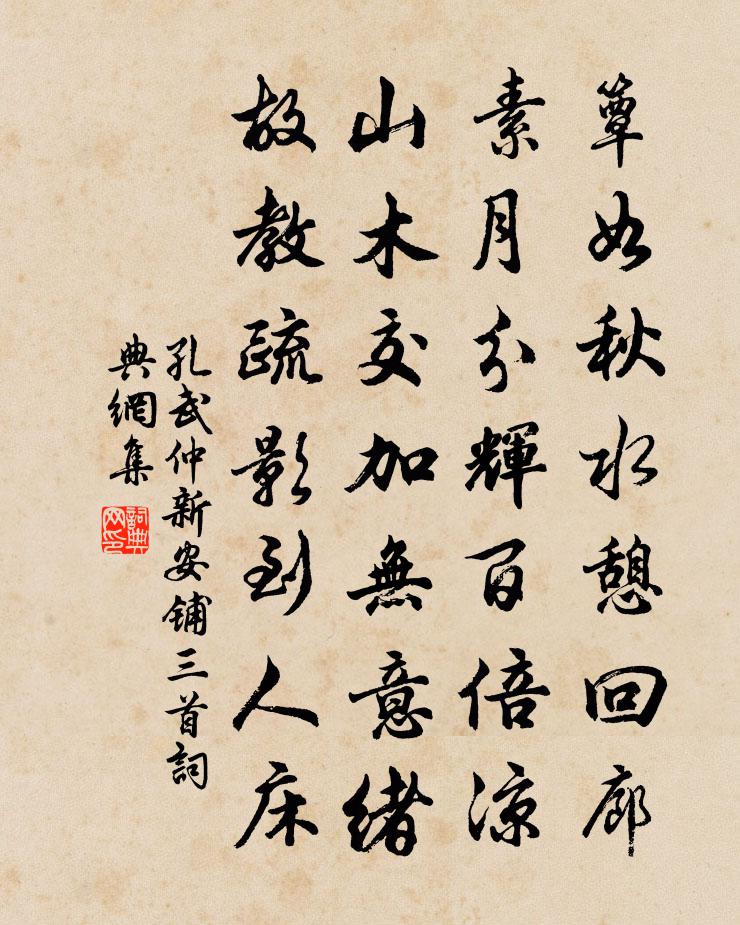 簟如秋水憩回廊
素月分輝百倍涼
山木交加無意緒
故教疏影到人床
孔武仲新安鋪三首詞
典網集
詞典
网印